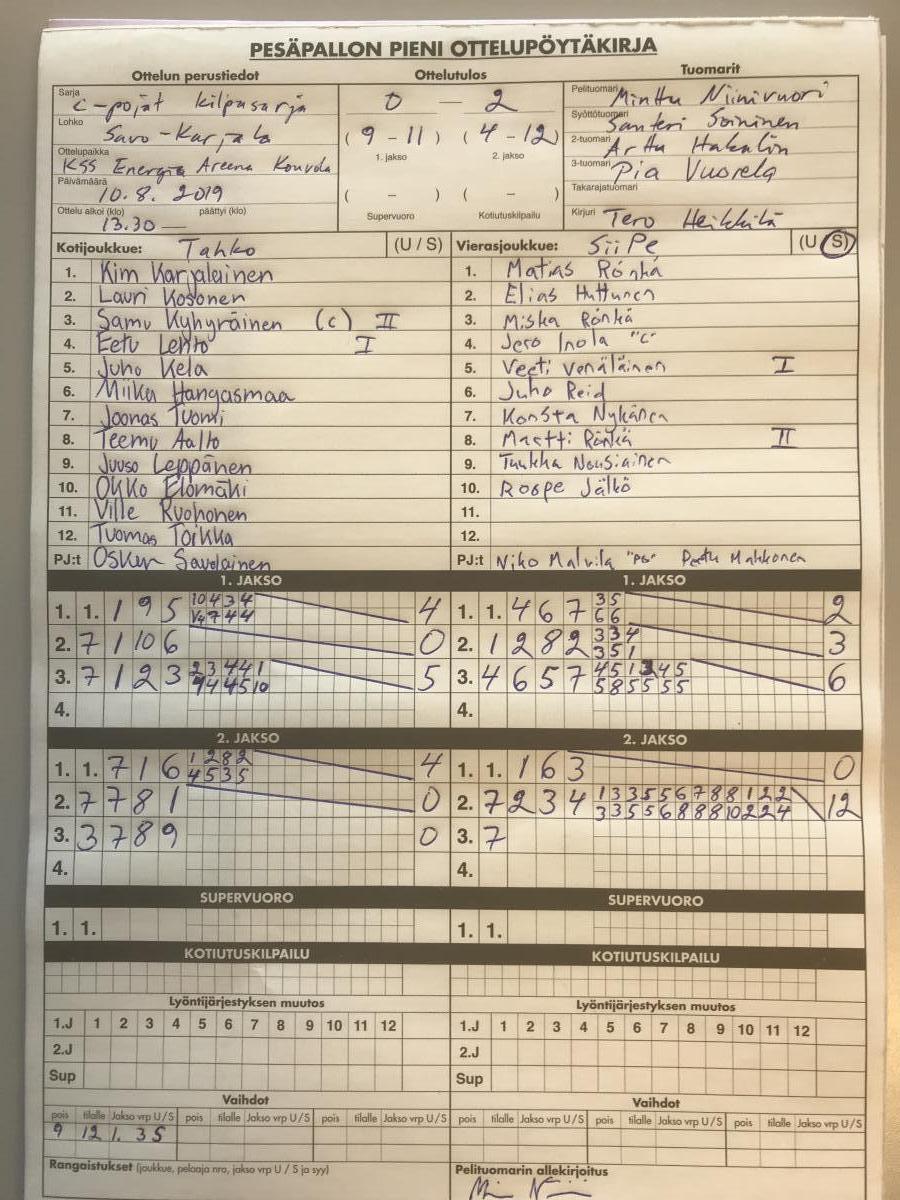 PESÄPALLON PIENI OTTELUPÖYTÄKIRJA
Ottelun perustiedot
Ottelutulos
Tuomarit
Sarja C-pojat kilpasarja
Lohko Savo-Karjala
Ottelupaikka KSS Energia Areena Kouvola
Päivämäärä 10.8. 2019
Ottelu alkoi (klo) 13.30 — päättyi (klo)
0 — 2
(9 - 11) (4 - 12)
1. jakso 2. jakso
( - ) ( - )
Supervuoro Kotiutuskilpailu
Pelituomari Minttu Niinivuori
Syöttötuomari Santeri Soininen
2-tuomari Arttu Hakalin
3-tuomari Pia Vuorela
Takarajatuomari
Kirjuri Tero Heikkilä
Kotijoukkue: Tahko (U / S)
1. Kim Karjalainen
2. Lauri Kosonen
3. Samu Kyhyräinen (c) II
4. Eetu Lehto I
5. Juho Kela
6. Miika Hangasmaa
7. Joonas Tuomi
8. Teemu Aalto
9. Juuso Leppänen
10. Okko Elomäki
11. Ville Ruohonen
12. Tuomas Toikka
PJ:t Oskari Savolainen
Vierasjoukkue: SiiPe (U / S)
1. Matias Rönkä
2. Elias Huttunen
3. Miska Rönkä
4. Jero Inola "C"
5. Veeti Venäläinen I
6. Juho Reid
7. Konsta Nykänen
8. Martti Rönkä II
9. Tuukka Nousiainen
10. Roope Jälkö
11.
12.
PJ:t Niko Malvila "PJ" Pertu Mahkonen
1. JAKSO
1. 1. 1 9 5 10 4 3 4 4
V4 7 4 4
2. 7 1 10 6 0
3. 7 1 2 3 2 3 4 4 1 5
4 4 4 5 10
4.
1. JAKSO
1. 1. 4 6 7 3 5 2
6 6
2. 1 2 8 2 3 3 4 3
3 5 1
3. 4 6 5 7 4 5 1 3 4 5 6
5 8 5 5 5 5
4.
2. JAKSO
1. 1. 7 1 6 1 2 8 2 4
4 5 3 5
2. 7 7 8 1 0
3. 3 7 8 9 0
4.
2. JAKSO
1. 1. 1 6 3 0
2. 7 2 3 4 1 3 3 5 5 6 7 8 8 1 2 2 12
3 3 5 5 6 8 8 8 10 2 2 4
3. 7
4.
SUPERVUORO
1. 1.
SUPERVUORO
1. 1.
KOTIUTUSKILPAILU
KOTIUTUSKILPAILU
Lyöntijärjestyksen muutos
1.J 1 2 3 4 5 6 7 8 9 10 11 12
2.J
Sup
Lyöntijärjestyksen muutos
1.J 1 2 3 4 5 6 7 8 9 10 11 12
2.J
Sup
Vaihdot
pois tilalle Jakso vrp U/S pois tilalle Jakso vrp U/S pois tilalle Jakso vrp U/S
9 12 1. 3 S
Vaihdot
pois tilalle Jakso vrp U/S pois tilalle Jakso vrp U/S pois tilalle Jakso vrp U/S
Rangaistukset (joukkue, pelaaja nro, jakso vrp U / S ja syy)
Pelituomarin allekirjoitus